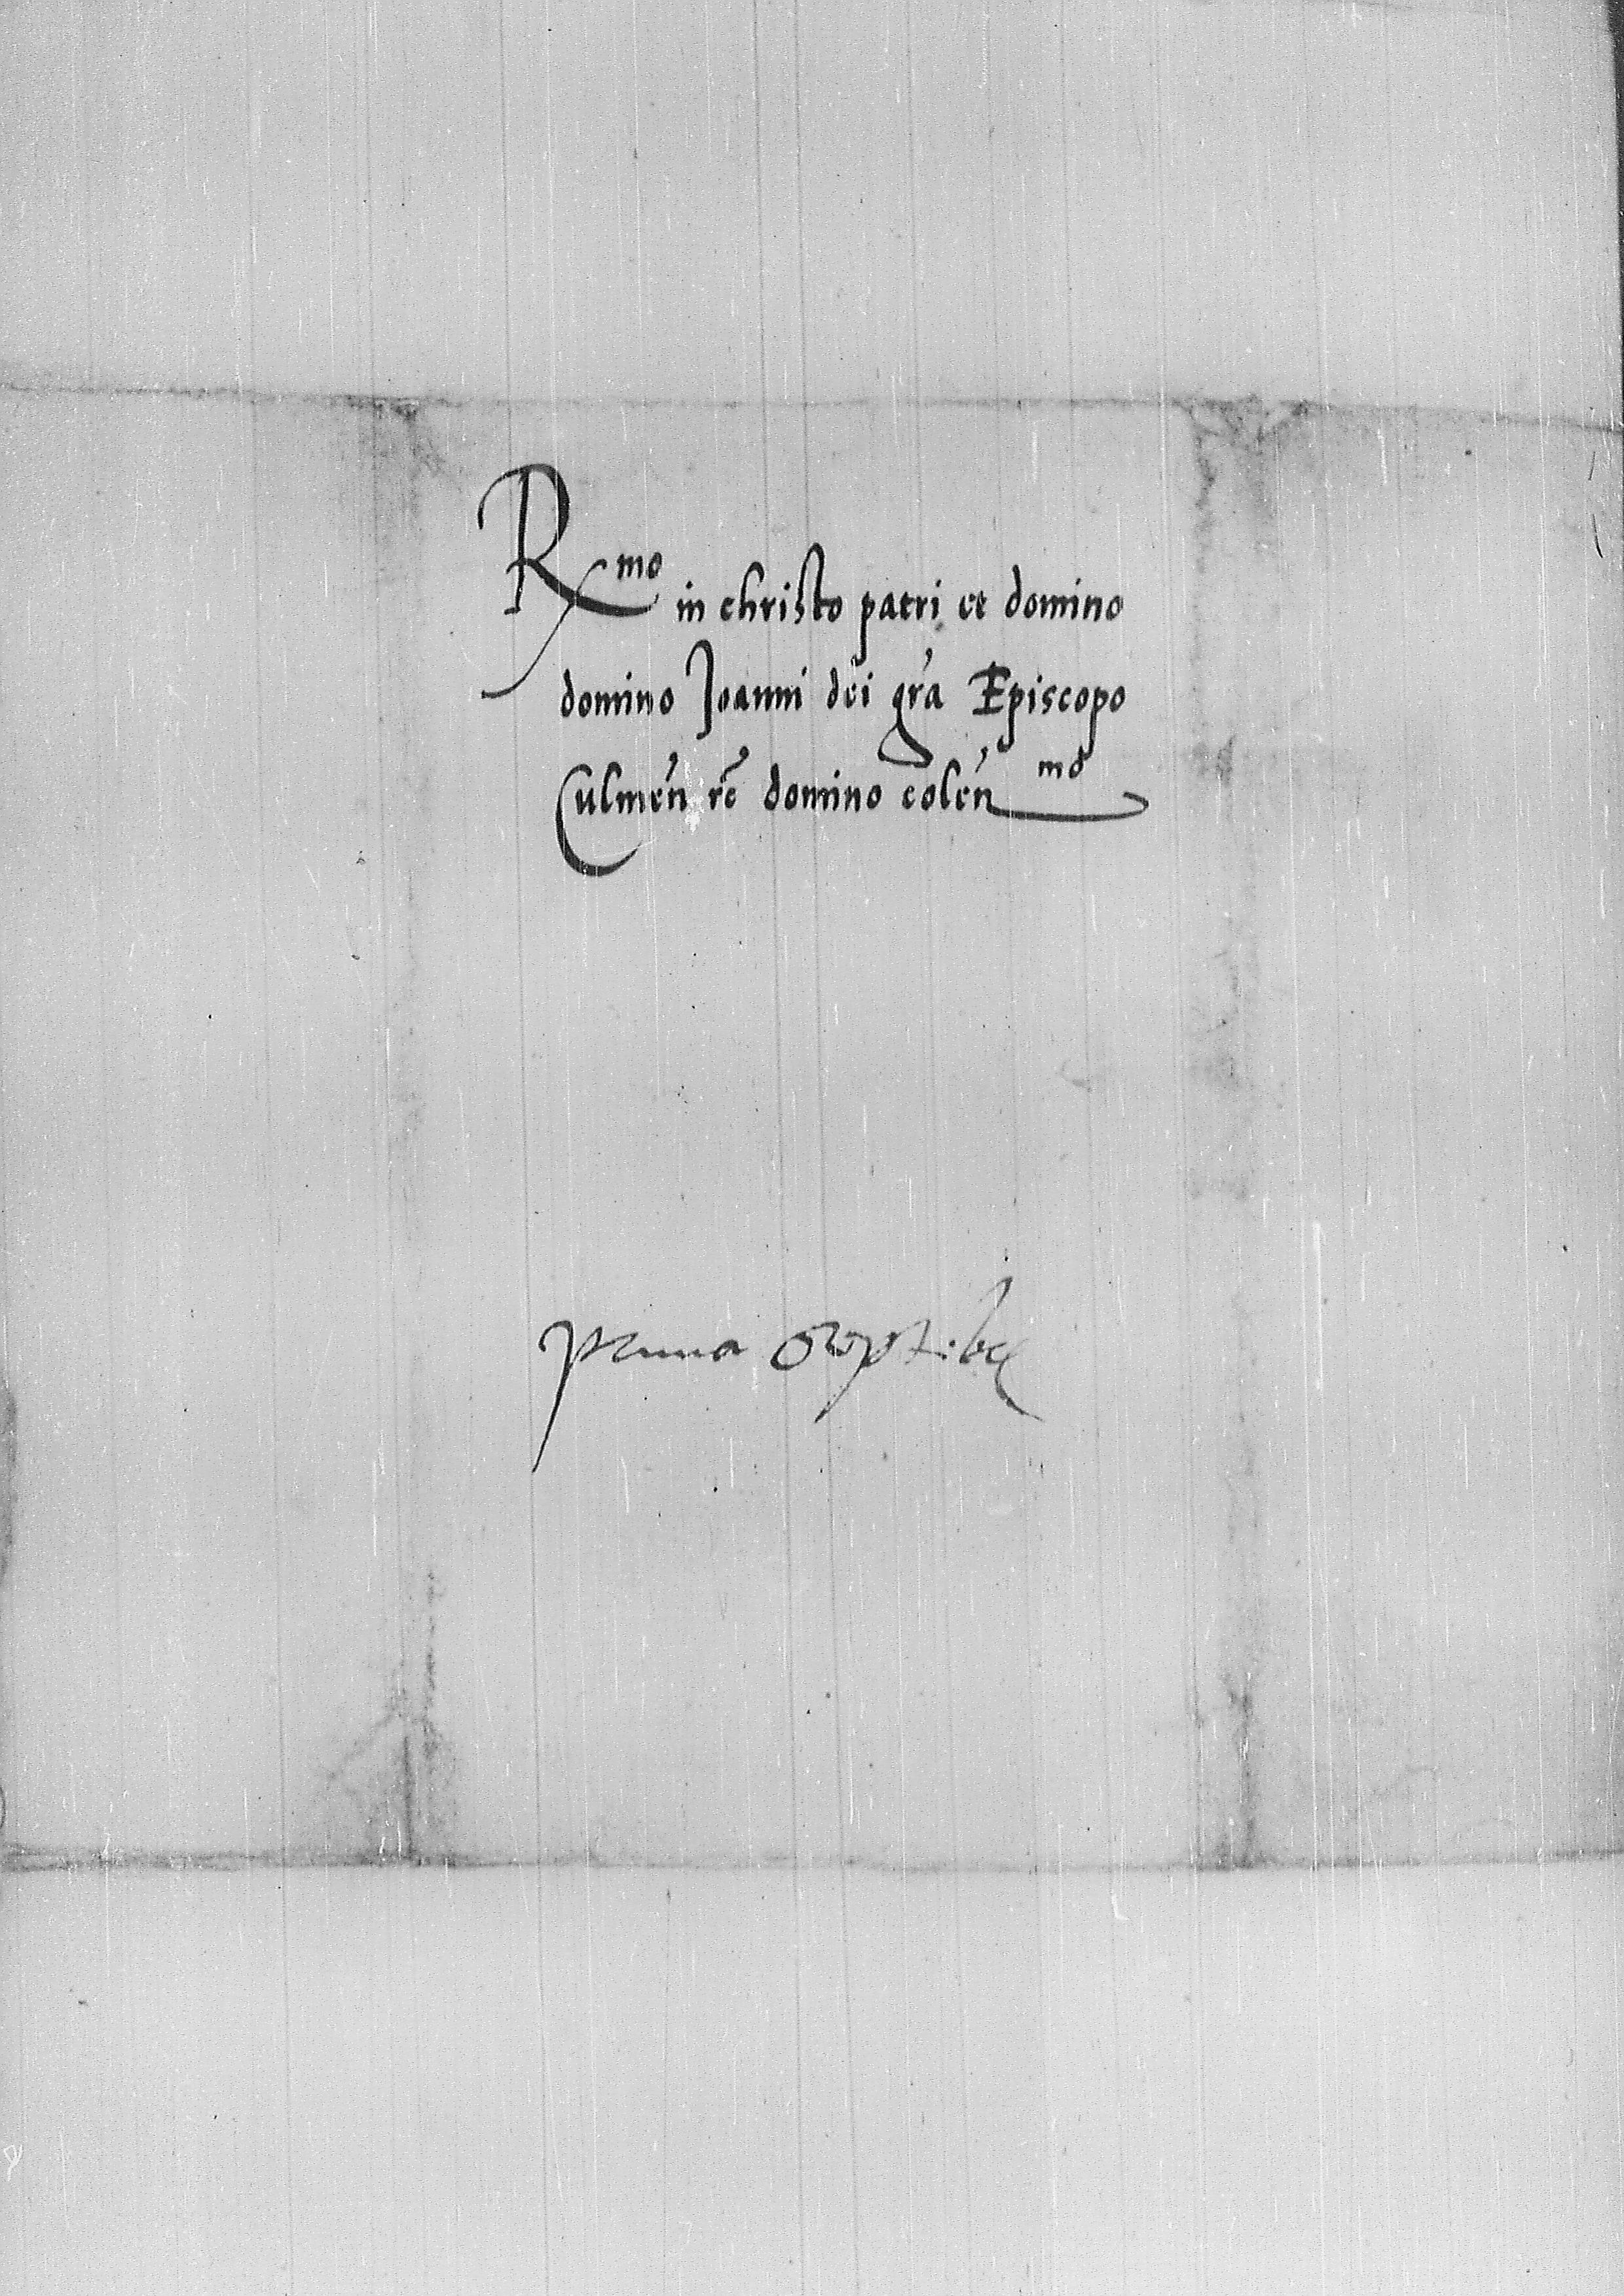 R^mo in christo patri et domino
domino Joanni dei gr̃a Episcopo
Culmeñ rẽ domino coleñ^mo